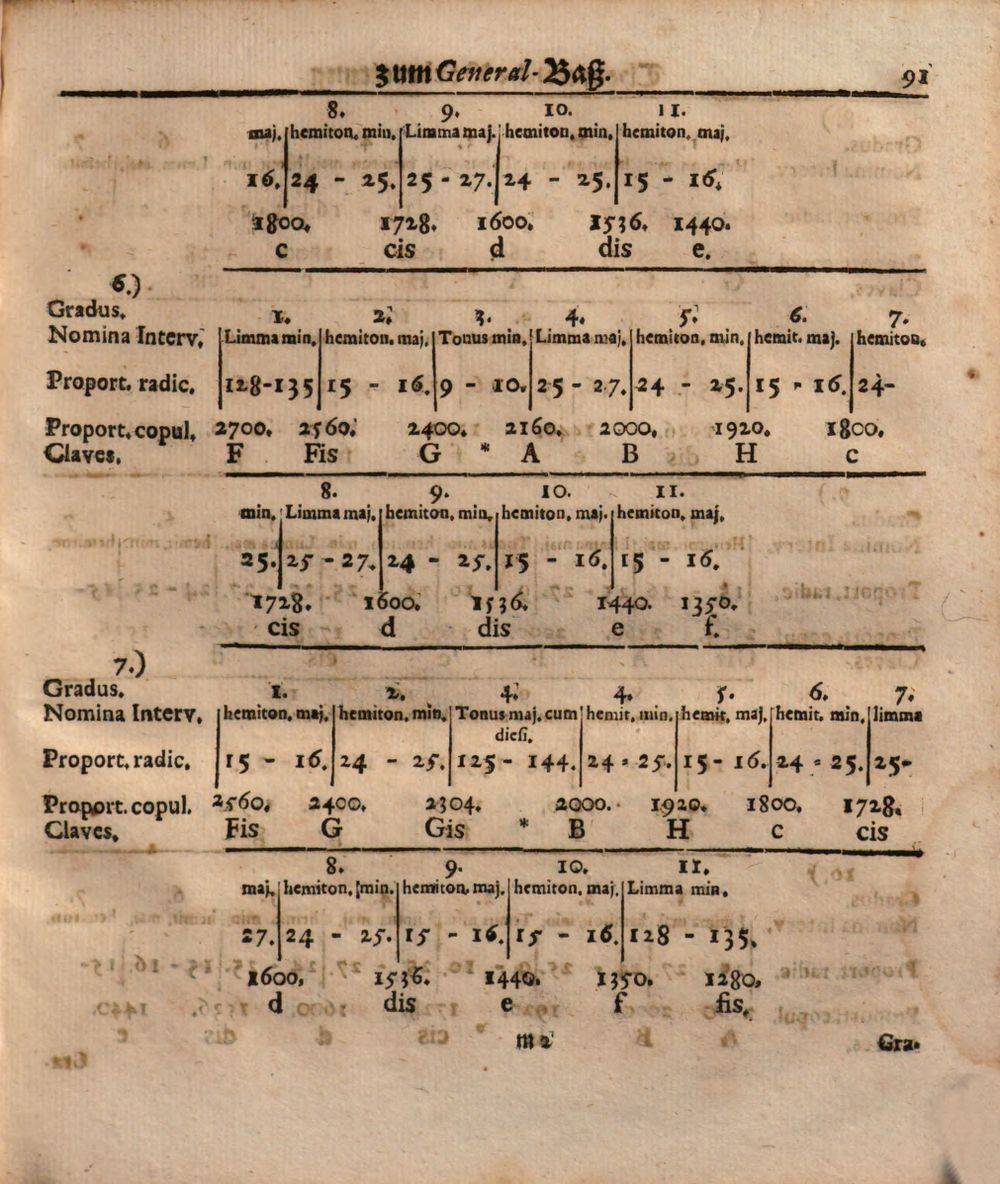 zum General-Baß. 91
8. 9. 10. 11.
maj. hemiton. min. Limma maj. hemiton. min. hemiton. maj.
16. 24 - 25. 25 - 27. 24 - 25. 15 - 16.
1800. 1728. 1600. 1536. 1440.
c cis d dis e.
6.)
Gradus. 1. 2. 3. 4. 5. 6. 7.
Nomina Interv. Limma min. hemiton. maj. Tonus min. Limma maj. hemiton. min. hemit. maj. hemiton.
Proport. radic. 128-135 15 - 16. 9 - 10. 25 - 27. 24 - 25. 15 - 16. 24-
Proport. copul. 2700. 2560. 2400. 2160. 2000. 1920. 1800.
Claves. F Fis G * A B H c
8. 9. 10. 11.
min. Limma maj. hemiton. min. hemiton. maj. hemiton. maj.
25. 25 - 27. 24 - 25. 15 - 16. 15 - 16.
1728. 1600. 1536. 1440. 1350.
cis d dis e f.
7.)
Gradus. 1. 2. 4. 4. 5. 6. 7.
Nomina Interv. hemiton. maj. hemiton. min. Tonus maj. cum hemit. min. hemit. maj. hemit. min. limma
diesi.
Proport. radic. 15 - 16. 24 - 25. 125 - 144. 24 - 25. 15 - 16. 24 - 25. 25-
Proport. copul. 2560. 2400. 2304. 2000. 1920. 1800. 1728.
Claves. Fis G Gis * B H c cis
8. 9. 10. 11.
maj. hemiton. min. hemiton. maj. hemiton. maj. Limma min.
27. 24 - 25. 15 - 16. 15 - 16. 128 - 135.
1600. 1536. 1440. 1350. 1280.
d dis e f fis.
m 2 Gra-